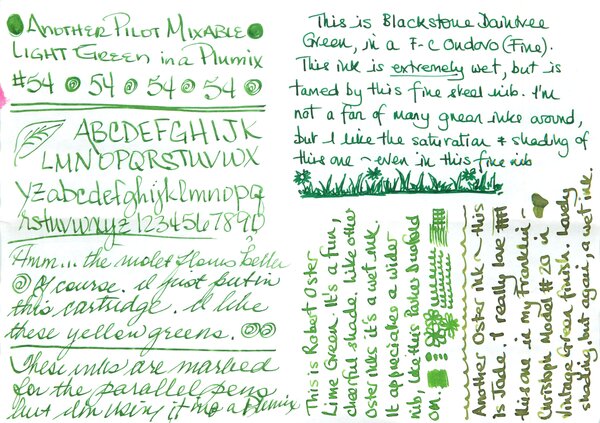 Another Pilot Mixable
Light Green in a Plumix
#54 54 54 54
ABCDEFGHIJK
LMNOPQRSTUVWX
YZ abcdefghijklmnopq
rstuvwxyz 1234567890
Hmm... the nib flows better
Of course. I'll just put in
this cartridge. I like
these yellow greens.
These inks are marked
for the parallel pens
but I'm using it in a Plumix
This is Blackstone Daintree
Green, in a F-C Ondoro (Fine).
This ink is extremely wet, but is
tamed by this fine steel nib. I'm
not a fan of many green inks around,
but I like the saturation & shading of
this one ~ even in this fine nib
This is Robert Oster
Lime Green. It's a fun,
cheerful shade. Like other
Oster inks it's a wet ink.
It appreciates a wider
nib, like this Parker Duofold
OM.
Another Oster ink ~ this
is Jade. I really love
this one in my Franklin-
Christoph Model #20 in
Vintage Green finish. Lovely
shading, but again, a wet ink.